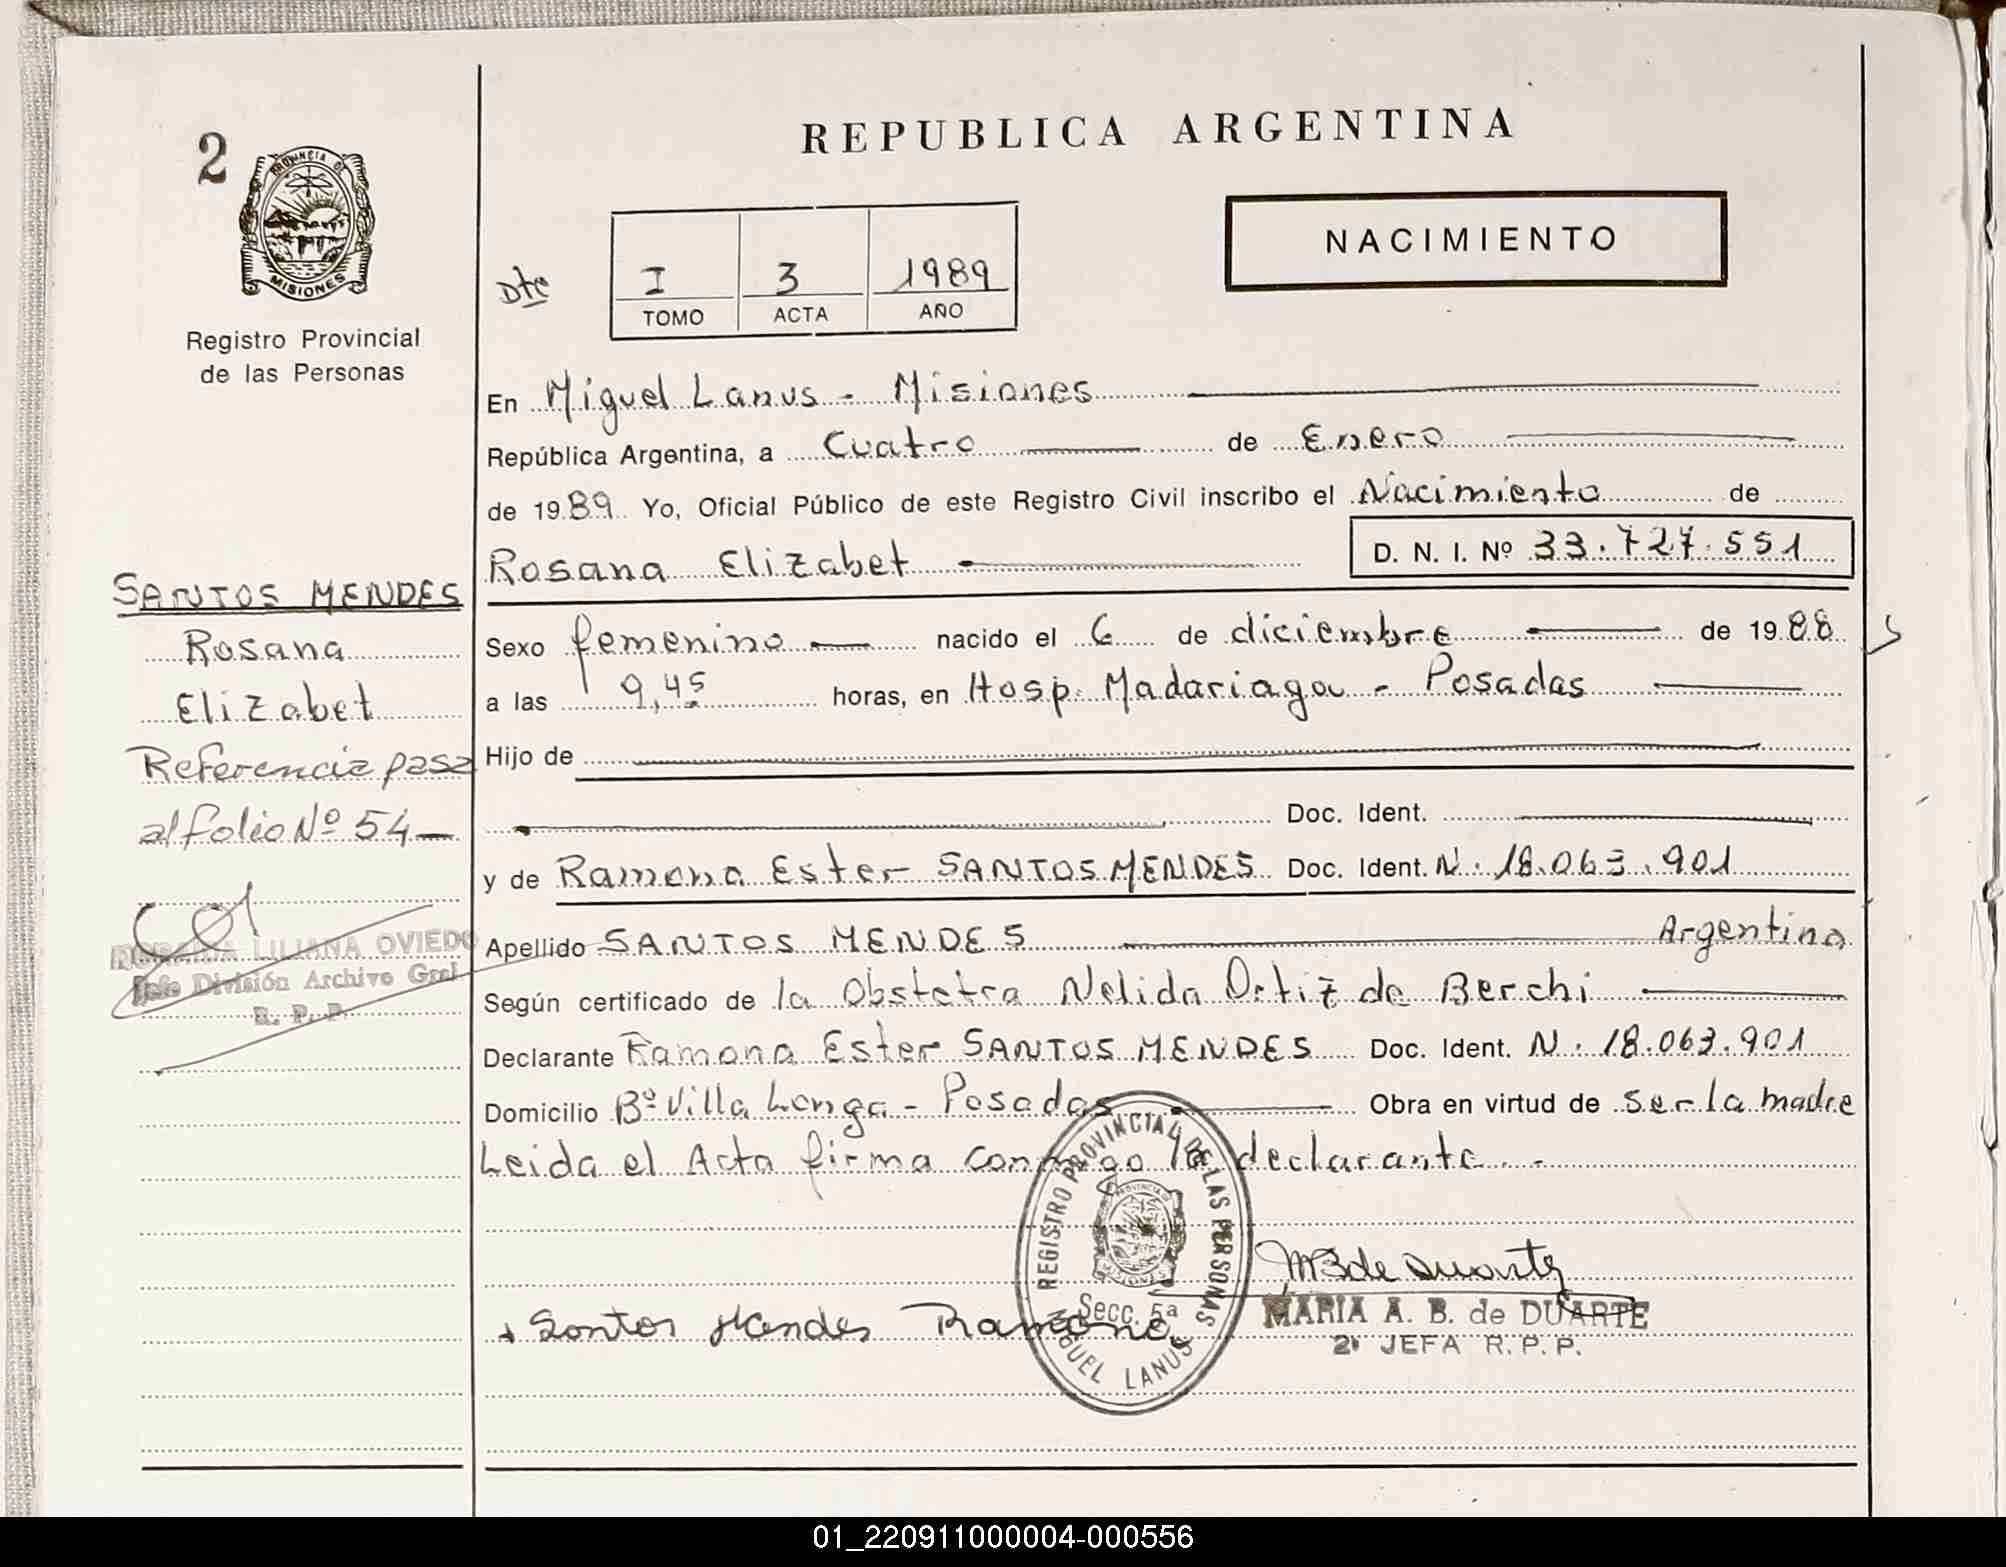 2
PROVINCIA DE
MISIONES
Registro Provincial
de las Personas
REPUBLICA ARGENTINA
NACIMIENTO
Dte
I 3 1989
TOMO ACTA AÑO
En Miguel Lanus - Misiones
República Argentina, a Cuatro de Enero
de 1989 Yo, Oficial Público de este Registro Civil inscribo el Nacimiento de
Rosana Elizabet D. N. I. Nº 33.727.551
Sexo femenino nacido el 6 de diciembre de 1988
a las 9,45 horas, en Hosp. Madariaga - Posadas
Hijo de
Doc. Ident.
y de Ramona Ester SANTOS MENDES Doc. Ident. N. 18.063.901
Apellido SANTOS MENDES Argentina
Según certificado de la Obstetra Nelida Ortiz de Berchi
Declarante Ramona Ester SANTOS MENDES Doc. Ident. N. 18.063.901
Domicilio Bº Villa Longa - Posadas Obra en virtud de ser la madre
Leida el Acta firma conmigo la declarante.-
SANTOS MENDES
Rosana
Elizabet
Referencia pasa
al folio Nº 54
LILIANA OVIEDO
Jefe División Archivo Gral
R. P. P.
REGISTRO PROVINCIAL DE LAS PERSONAS
PROVINCIA DE
MISIONES
Secc. 5ª
MIGUEL LANUS
Santos Mendes Ramona
MB de Duarte
MARIA A. B. de DUARTE
2ª JEFA R. P. P.
01_220911000004-000556